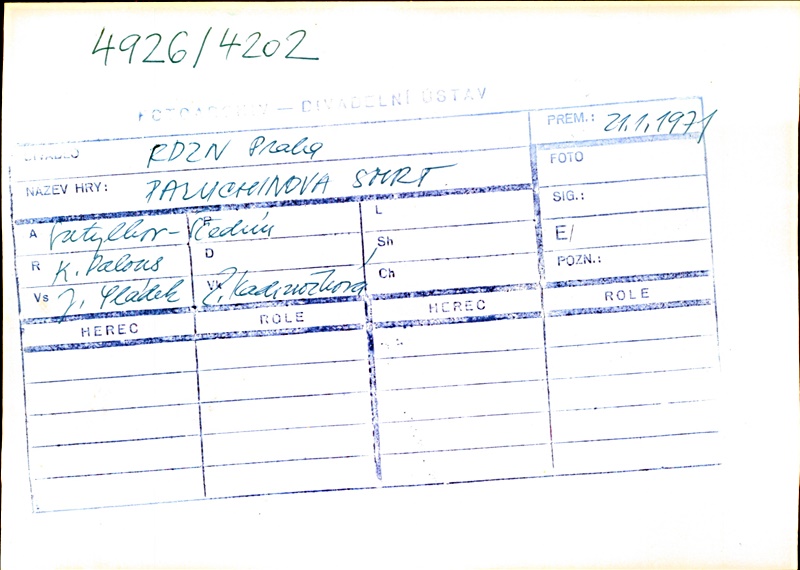 4926/4202
FOTOARCHIV — DIVADELNÍ ÚSTAV
DIVADLO RDZN Praha
PREM.: 21.1.1971
NÁZEV HRY: PALUCHINOVA SMRT
FOTO
SIG.:
E/
POZN.:
A
P
L
R K. Palous
D
Sh
Vs J. Sládek
Vk
Ch
HEREC ROLE HEREC ROLE